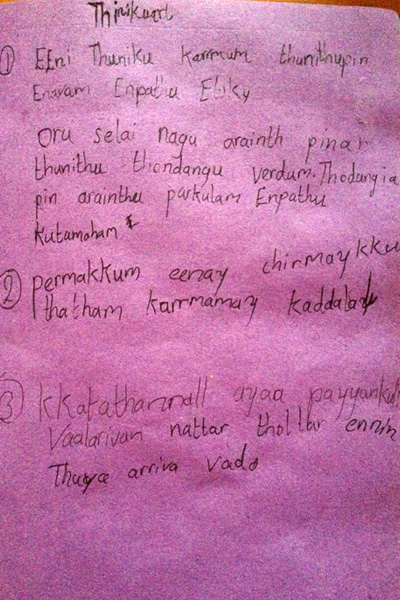 Thirukural
① EEni Thuniku karmum thunithupin
Enavam Enpathu Eliky
Oru selai nagu arainth pinar
thunithu thondangu verdum. Thodangia
pin arainthu parkulam Enpathu
kutamoham
② permakkum eenay chirmaykku
thatham karmamay kaddalai
③ kkatathannall ayaa payyankuli
Vaalarivan nattar thollar ennin
Thuya arriva vado